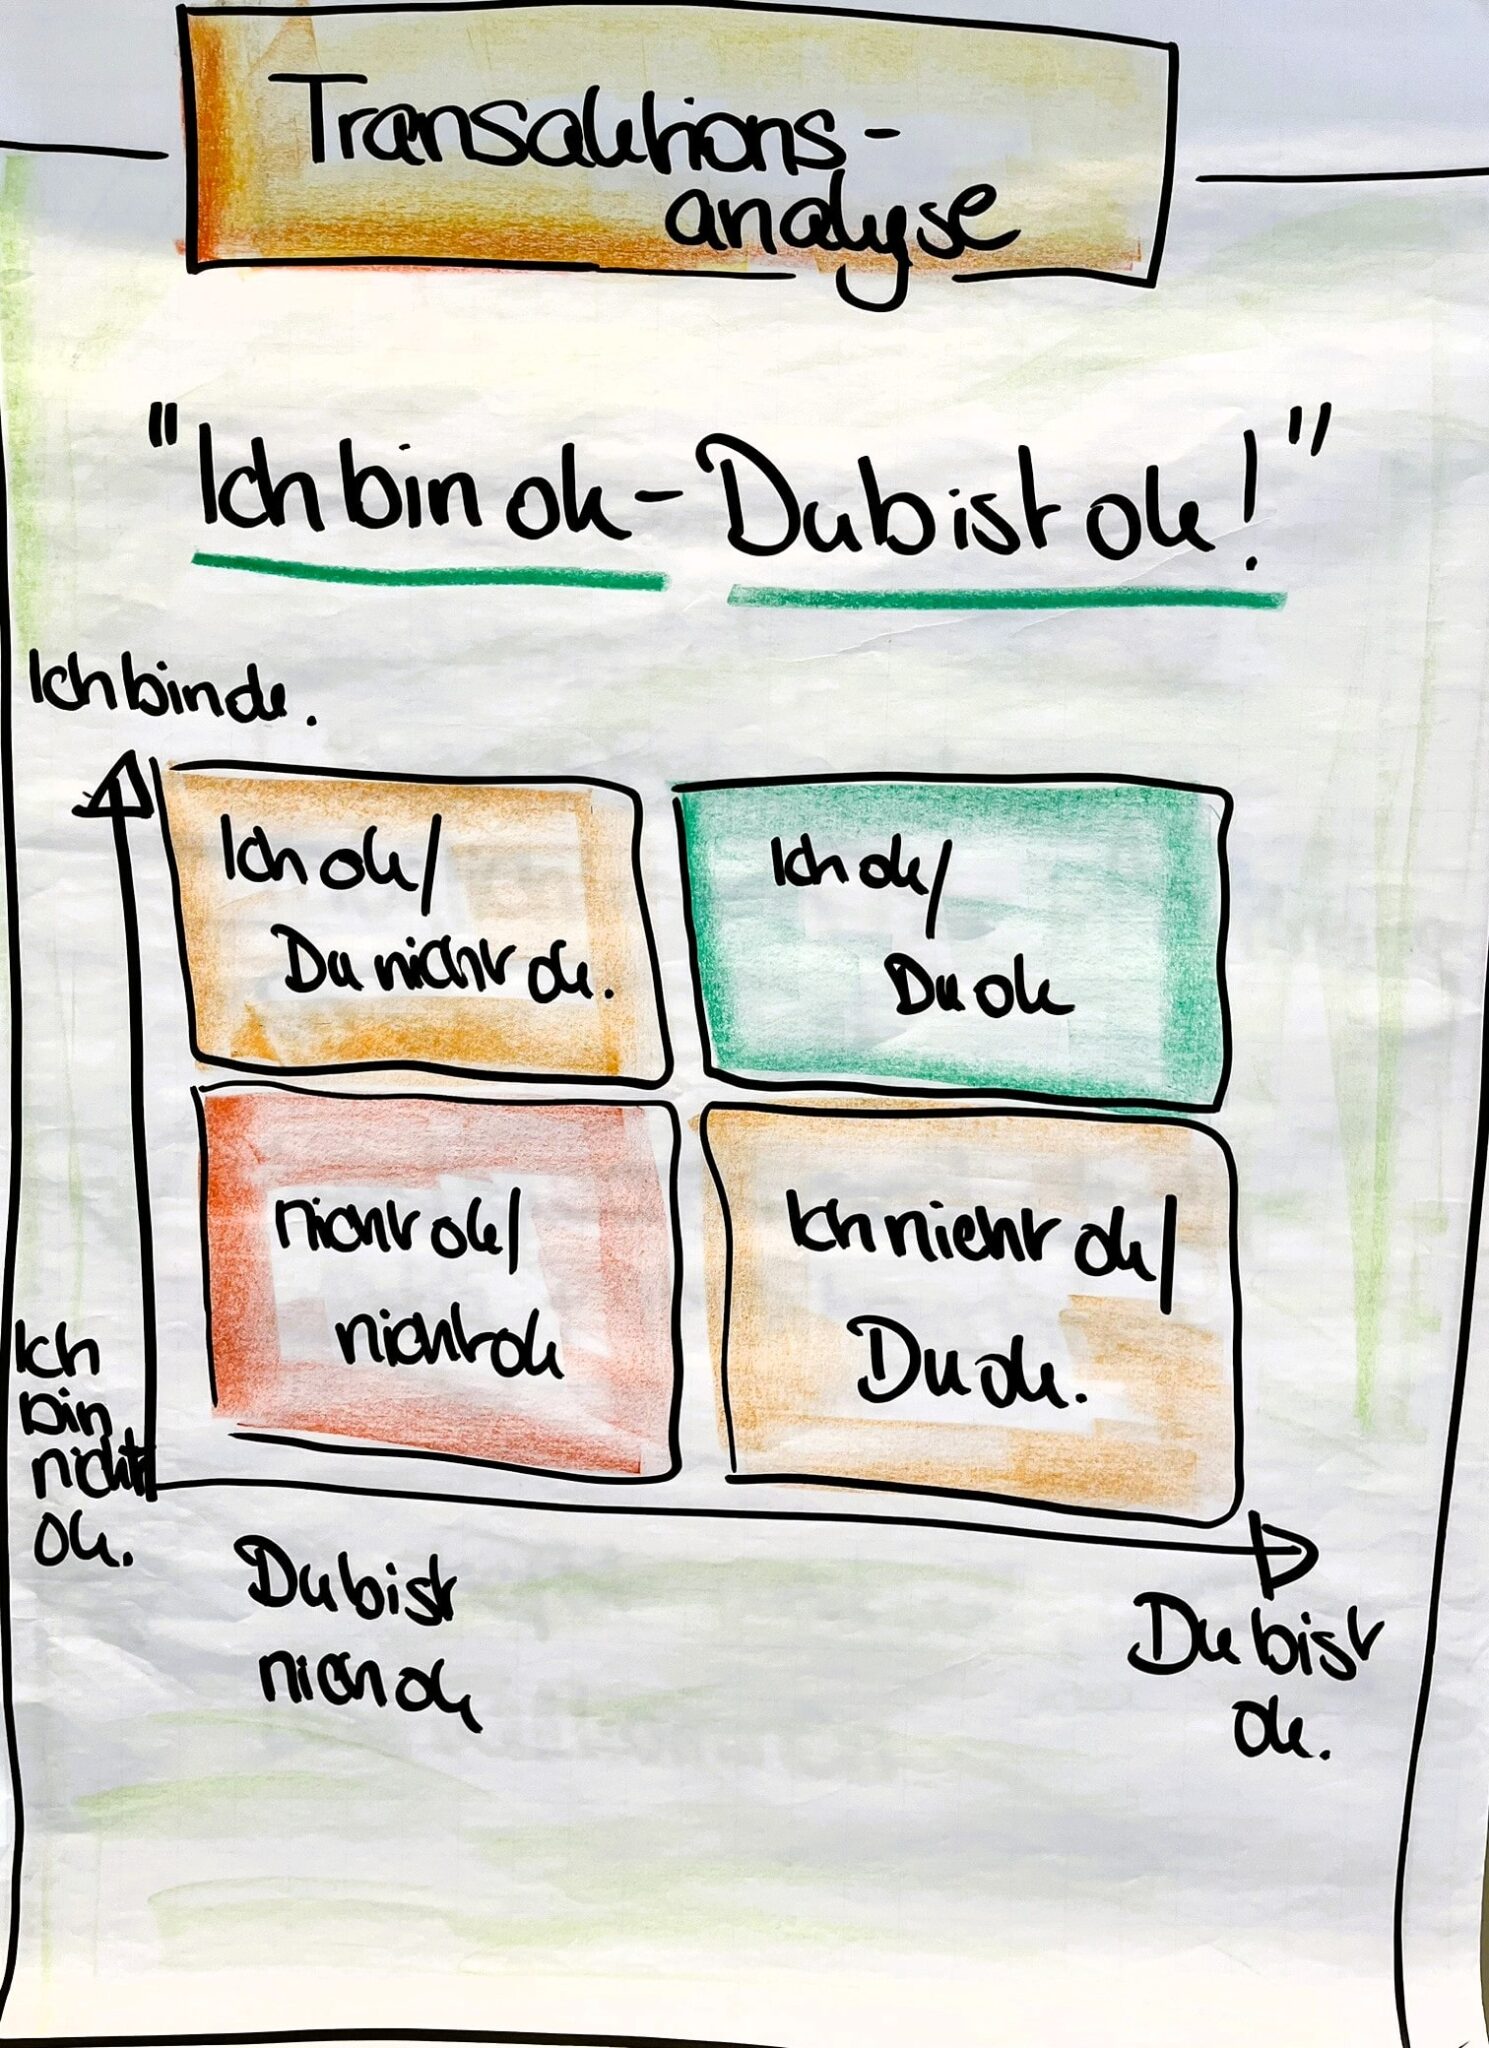 Transaktions-
analyse
"Ich bin ok - Du bist ok!"
Ich bin ok.
Ich ok/
Du nicht ok.
Ich ok/
Du ok
nicht ok/
nicht ok
Ich nicht ok/
Du ok.
Ich
bin
nicht
ok.
Du bist
nich ok
Du bist
ok.